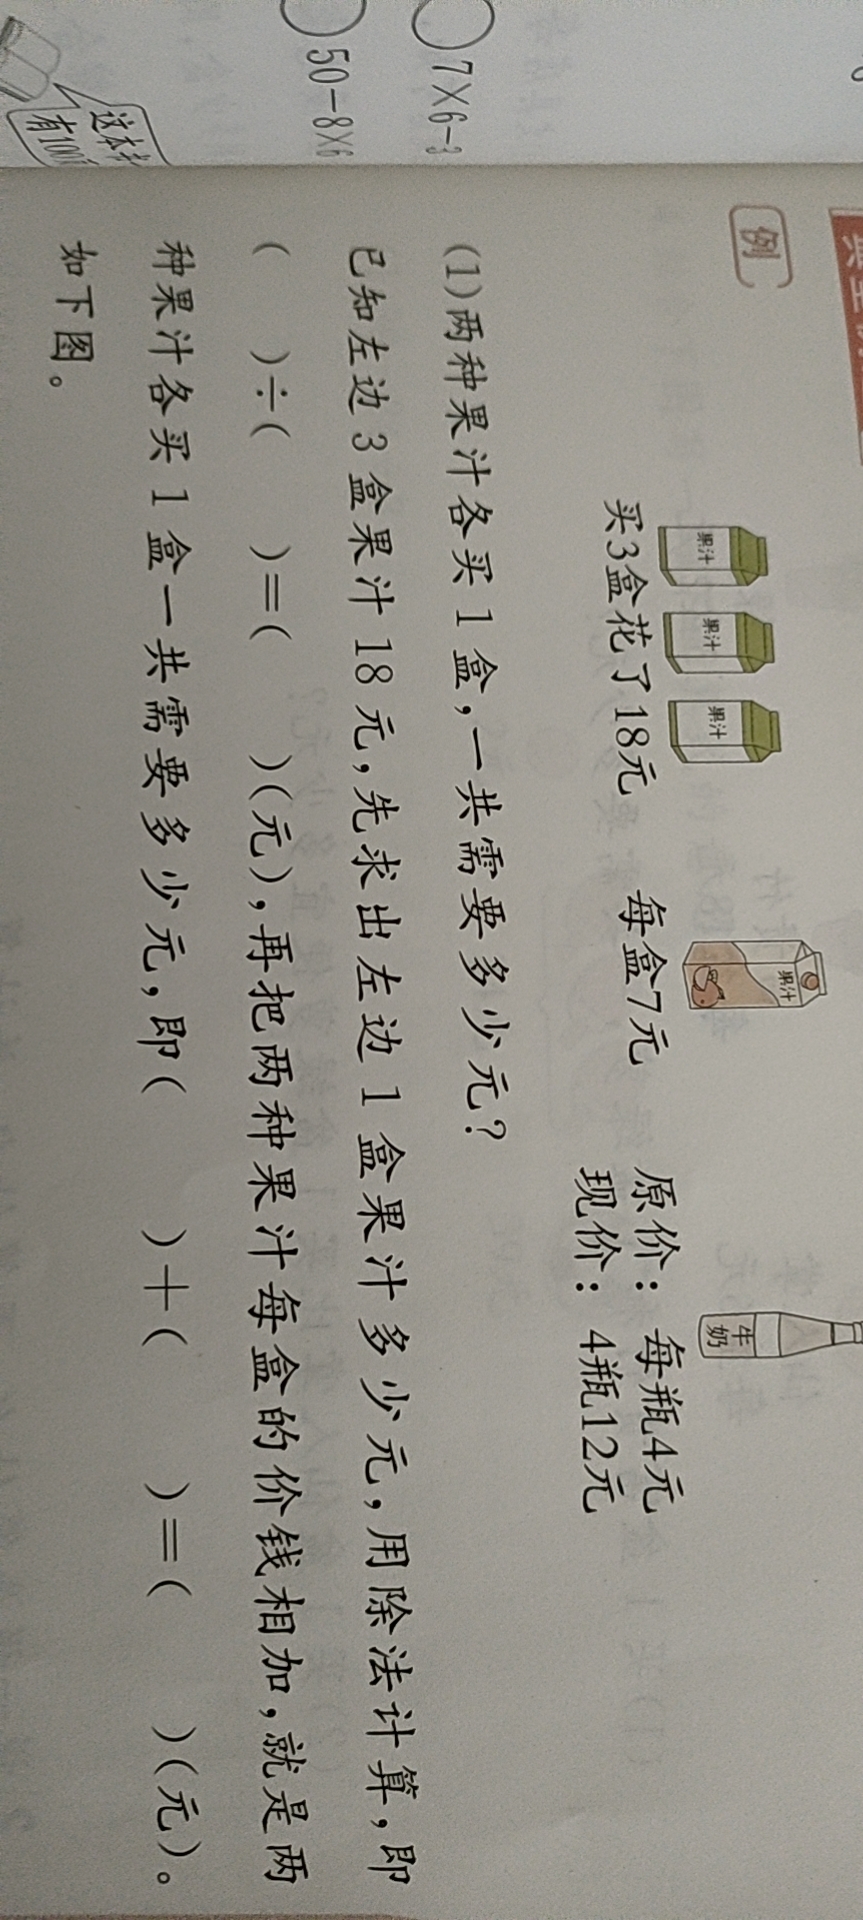 7×6-3
50-8×6
这本书
有100
例
果汁
果汁
果汁
果汁
牛奶
买3盒花了18元
每盒7元
原价：每瓶4元
现价：4瓶12元
(1)两种果汁各买1盒，一共需要多少元？
已知左边3盒果汁18元，先求出左边1盒果汁多少元，用除法计算，即
(    )÷(    )=(    )(元)，再把两种果汁每盒的价钱相加，就是两
种果汁各买1盒一共需要多少元，即(    )+(    )=(    )(元)。
如下图。